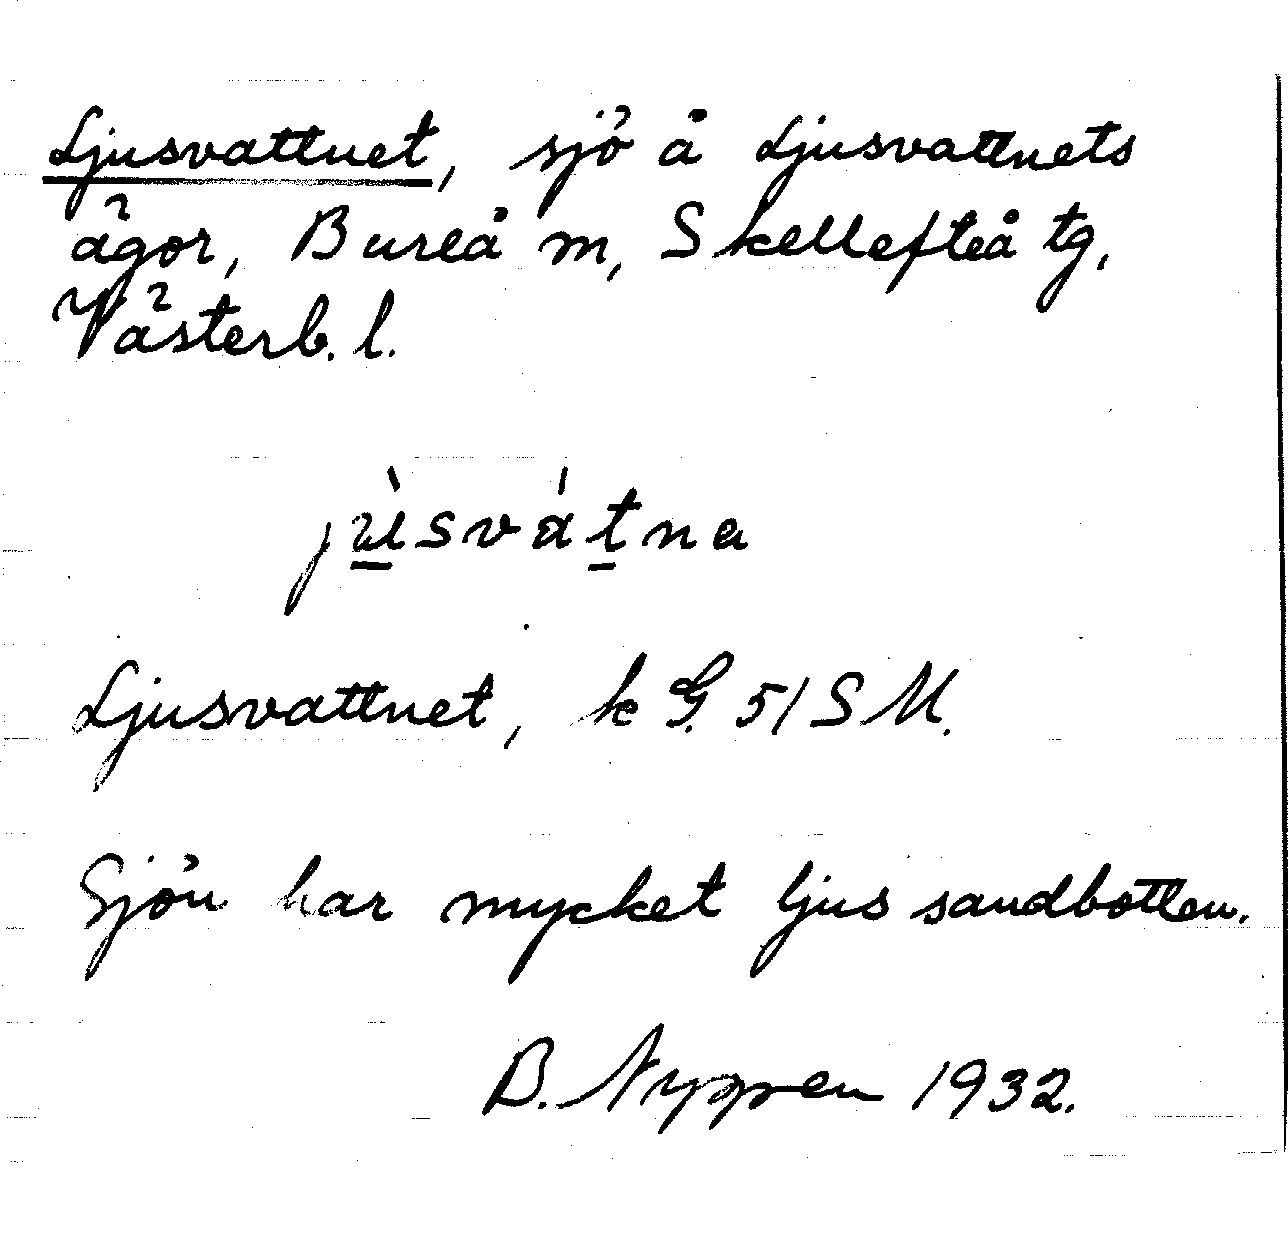 Ljusvattnet, sjö å Ljusvattnets
ägor, Bureå m, Skellefteå tg,
Västerb. l.
jùsvátna
Ljusvattnet, k G. 51 S M.
Sjön har mycket ljus sandbotten.
B. Nygren 1932.